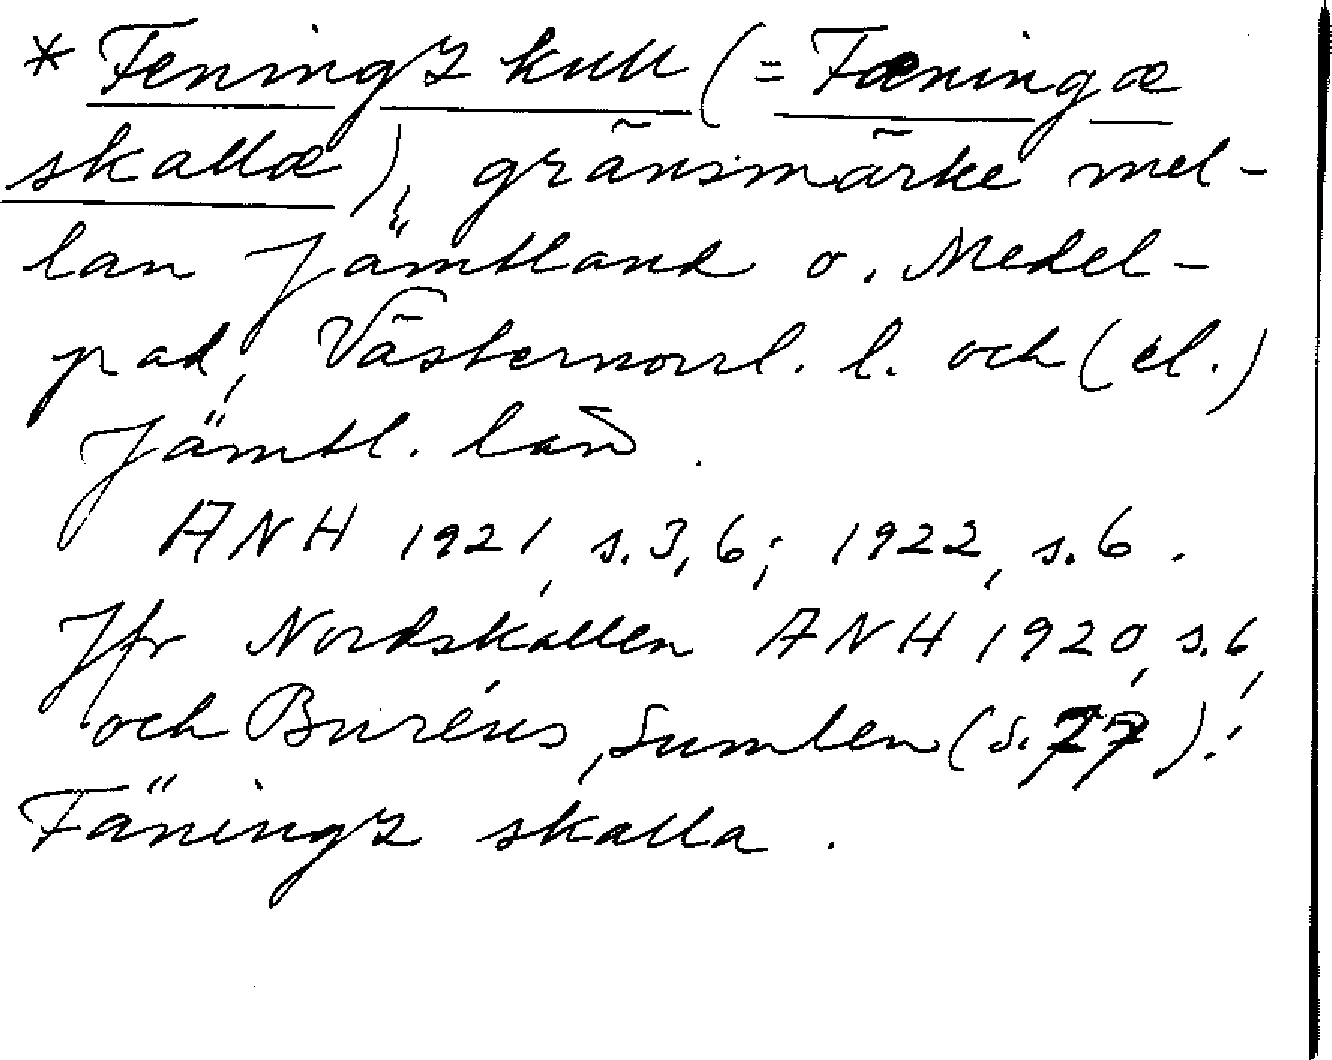 * Feningz kull (= Fæningæ
skallæ), gränsmärke mel-
lan Jämtland o. Medel-
pad, Västernorrl. l. och (el.)
Jämtl. län.
ANH 1921, s. 3, 6; 1922, s. 6.
Jfr Nordskallen ANH 1920, s. 6,
och Buréus, Sumlen (s. 77).:
Fäningz skalla.